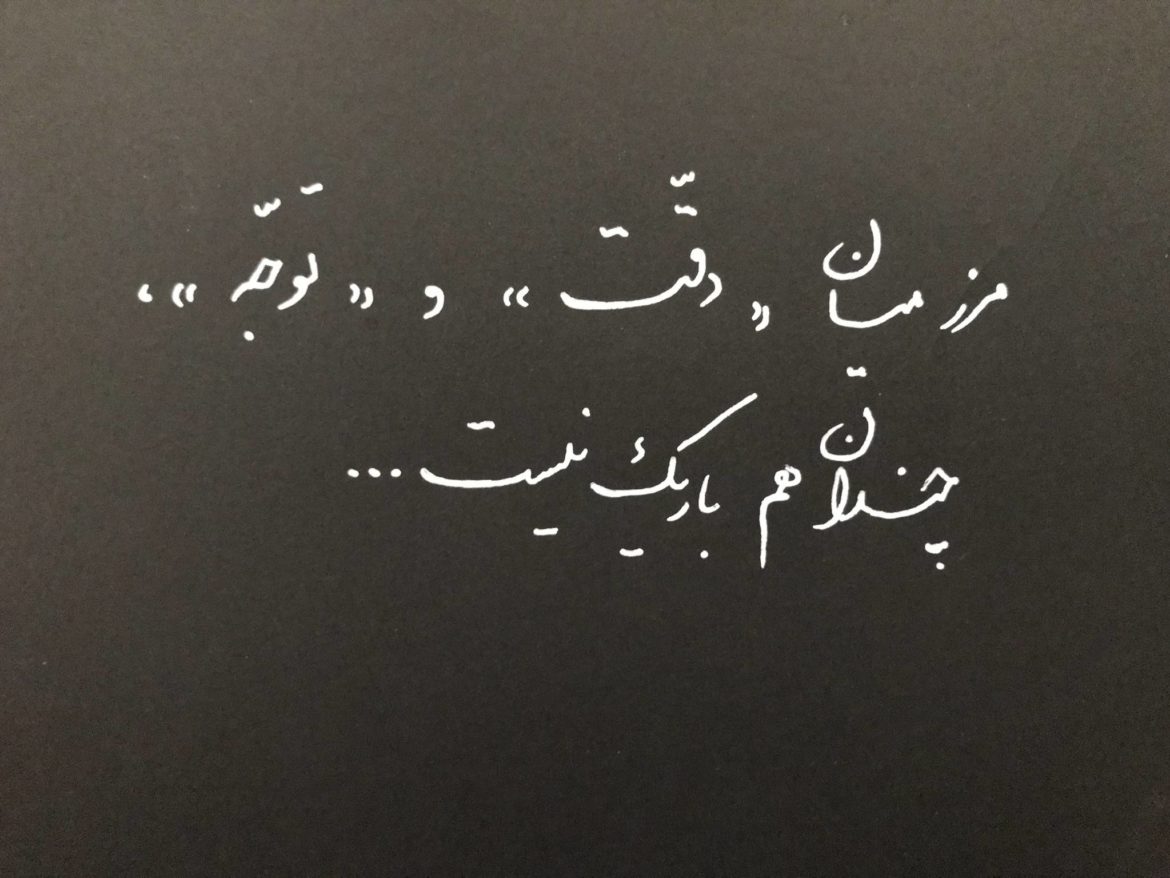 مرز میان «دقّت» و «توجّه»،
چندان هم باریک نیست...